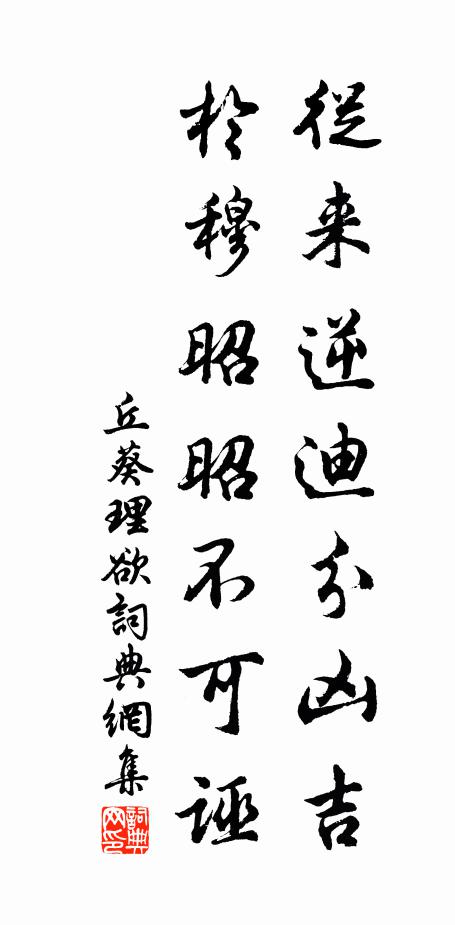 從来逆迪分凶吉
於穆昭昭不可誣
丘葵理欲詞典網集
詞典网印